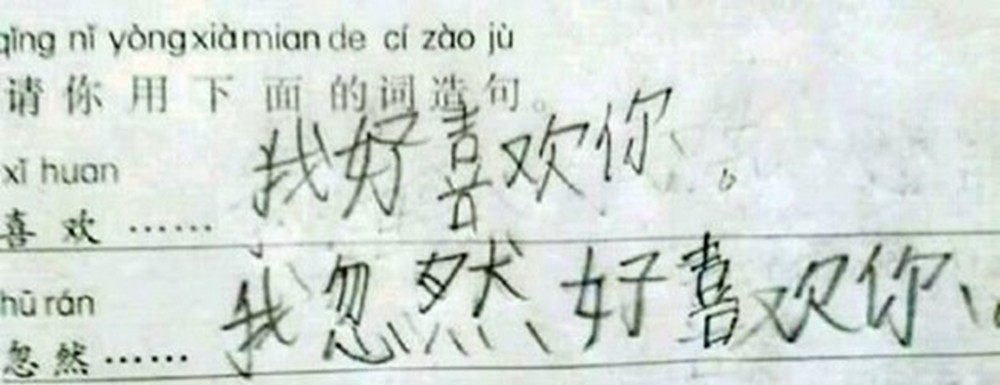 qǐng nǐ yòng xià mian de cí zào jù
请你用下面的词造句。
xǐ huan
喜欢…… 我好喜欢你。
hū rán
忽然…… 我忽然好喜欢你。